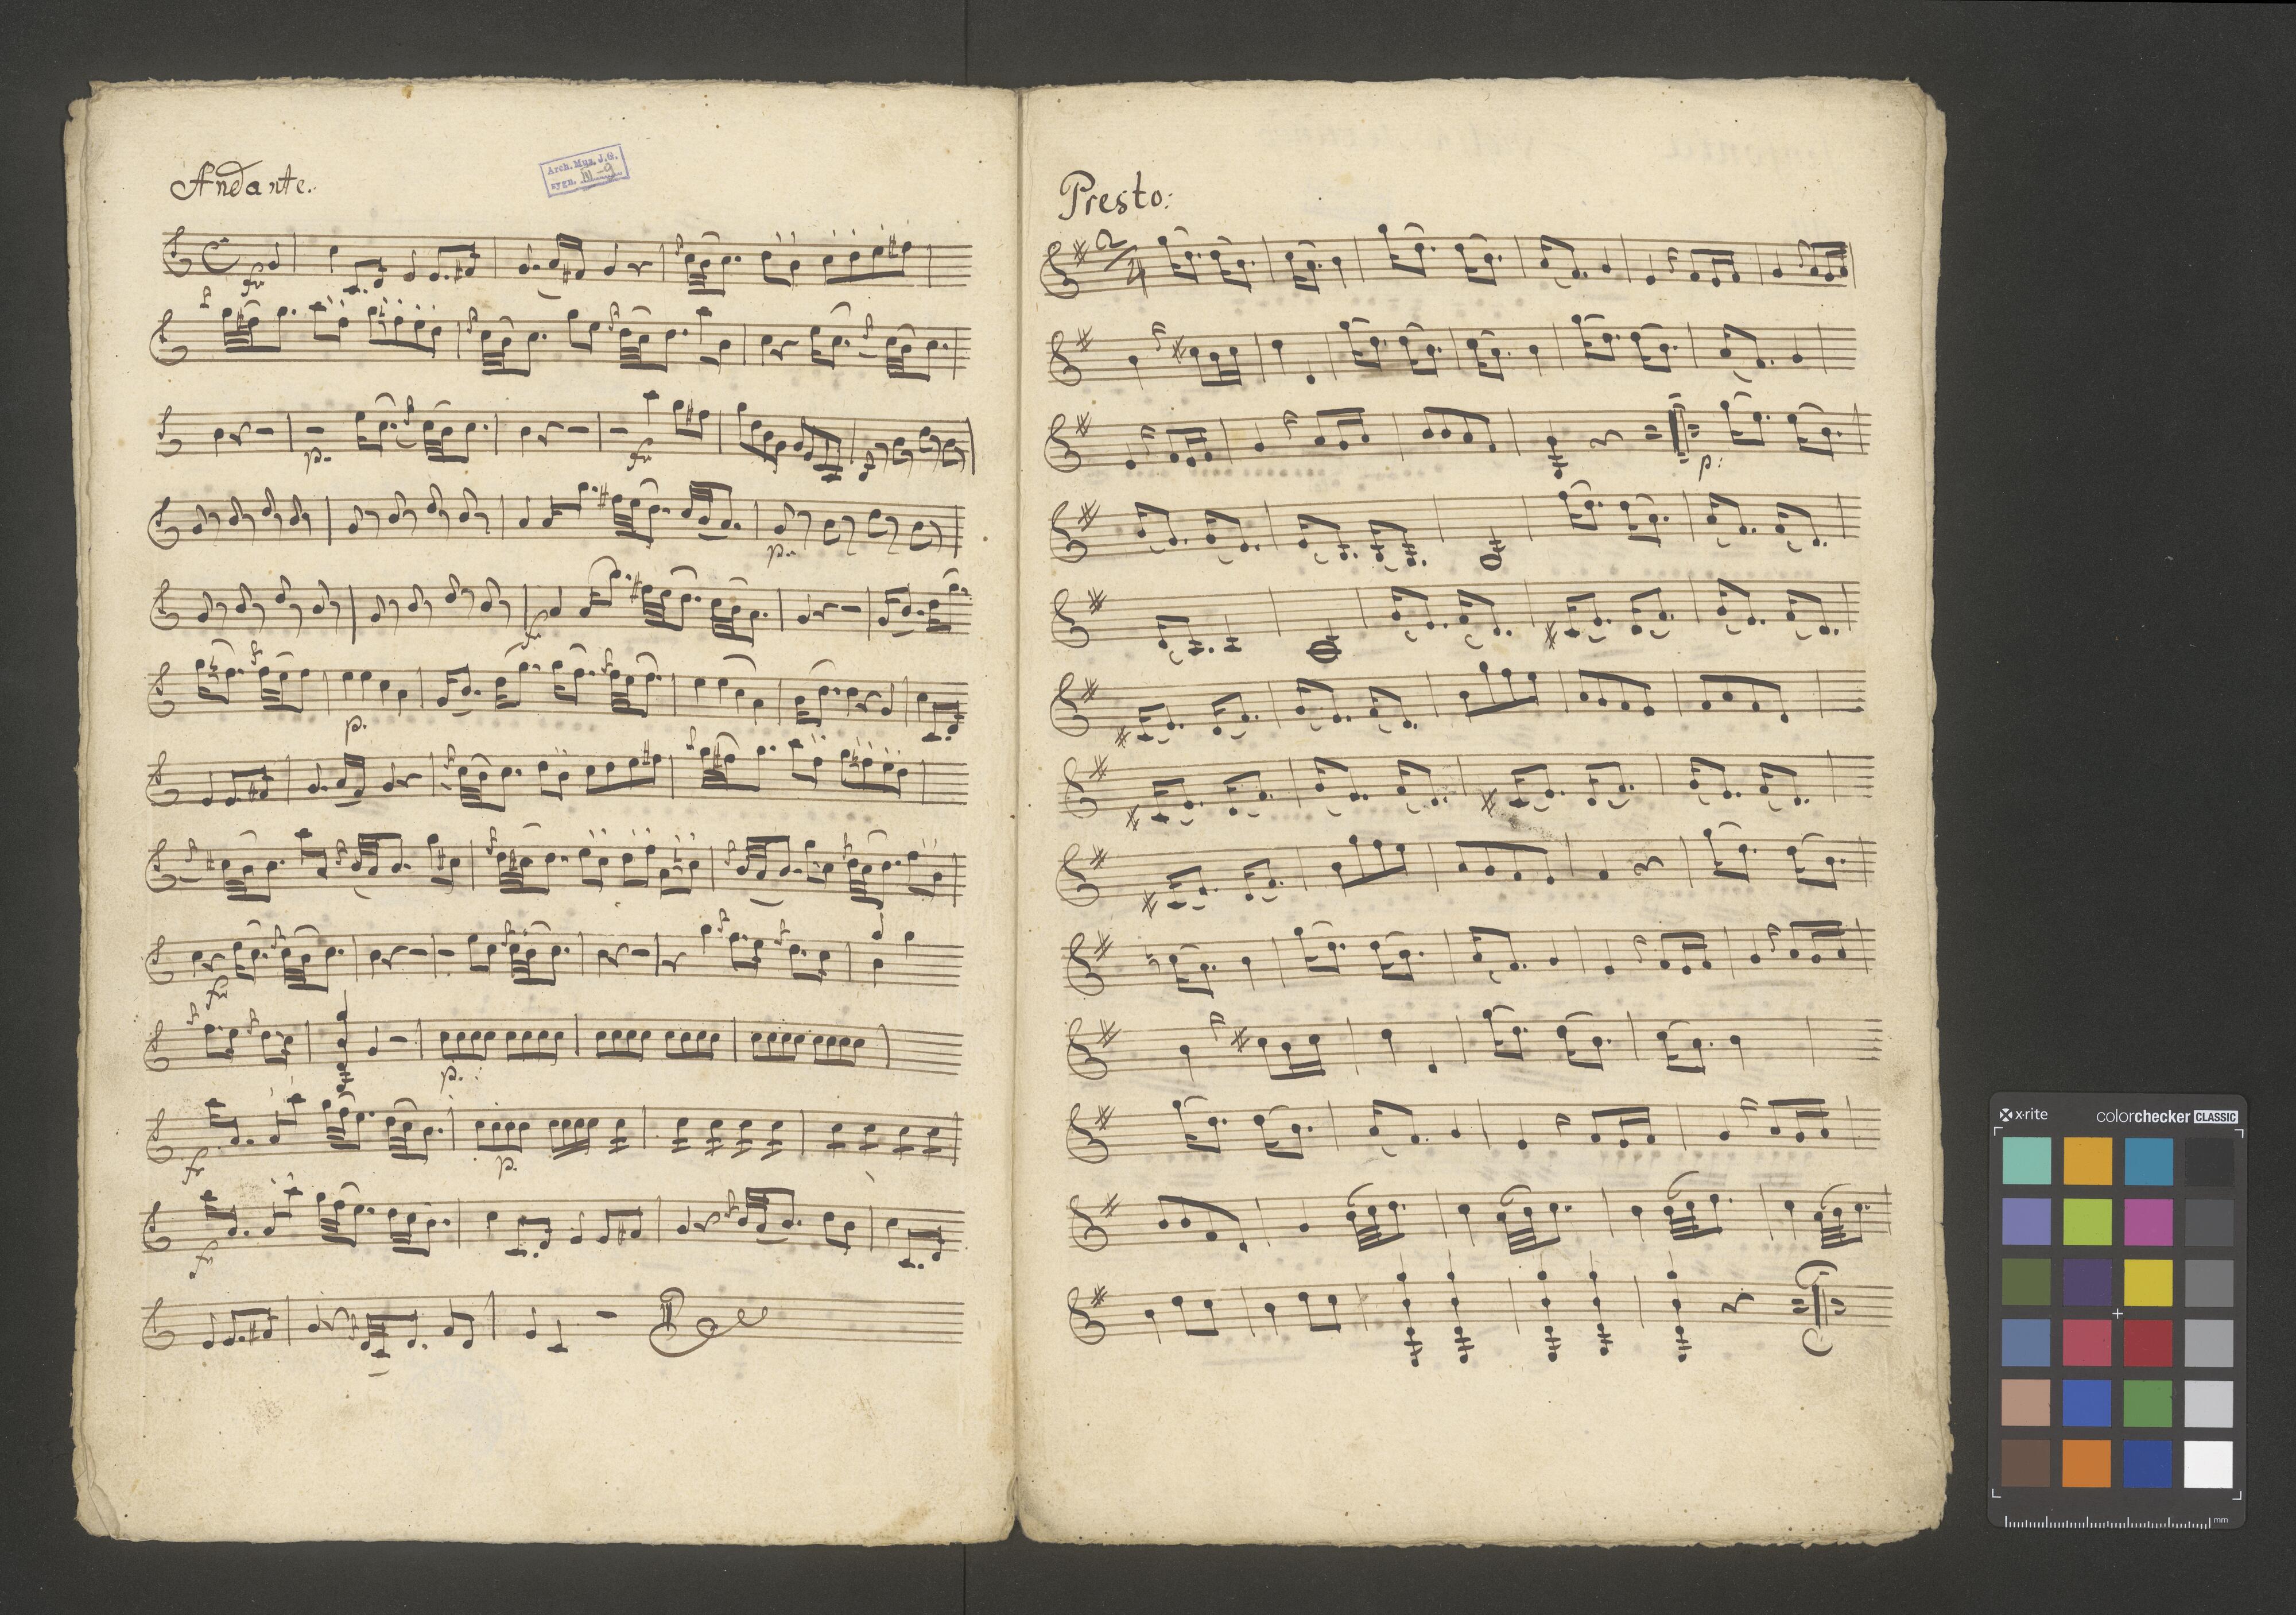 Andante.
Arch. Muz. J. G.
sygn. III-9
fu
p.
fu
p..
f
p.
fu
p.
f
p.
fu
Presto:
2/4
p:
x-rite
colorchecker CLASSIC
mm